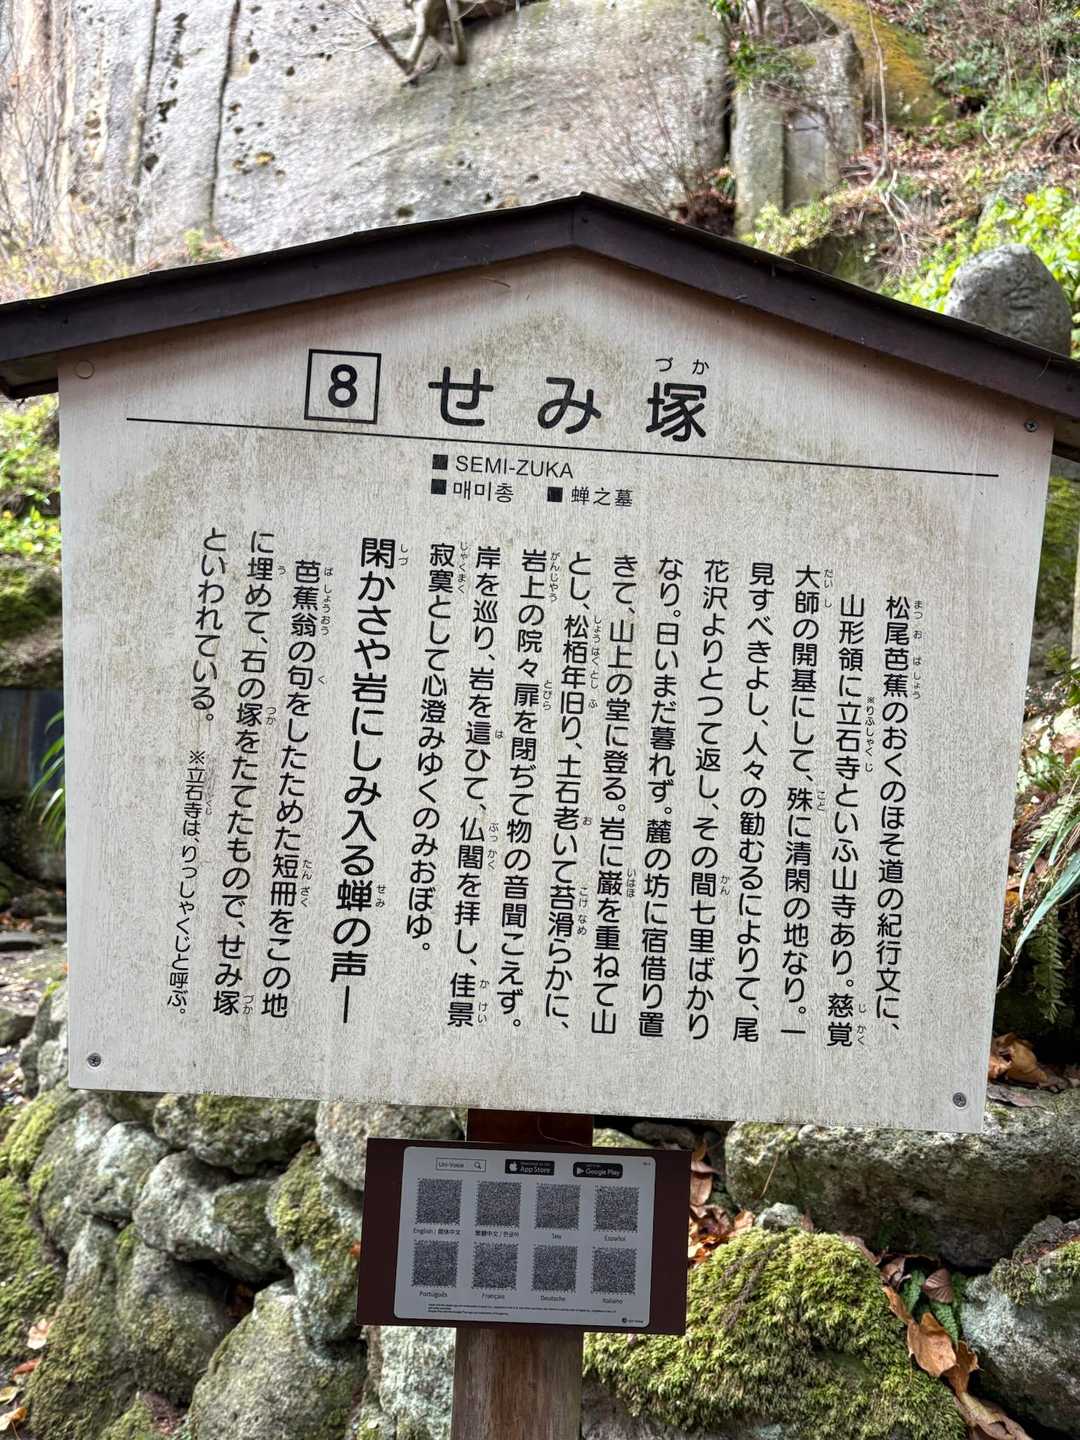 8 せみ塚
づか
■ SEMI-ZUKA
■ 매미총 ■ 蝉之墓
松尾芭蕉のおくのほそ道の紀行文に、
山形領に立石寺といふ山寺あり。慈覚
大師の開基にして、殊に清閑の地なり。一
見すべきよし、人々の勧むるによりて、尾
花沢よりとつて返し、その間七里ばかり
なり。日いまだ暮れず。麓の坊に宿借り置
きて、山上の堂に登る。岩に巌を重ねて山
とし、松栢年旧り、土石老いて苔滑らかに、
岩上の院々扉を閉ぢて物の音聞こえず。
岸を巡り、岩を這ひて、仏閣を拝し、佳景
寂寞として心澄みゆくのみおぼゆ。
閑かさや岩にしみ入る蝉の声―
芭蕉翁の句をしたためた短冊をこの地
に埋めて、石の塚をたてたもので、せみ塚
といわれている。
※立石寺は、りっしゃくじと呼ぶ。
Uni-Voice
App Store
Google Play
English / 簡体中文
繁體中文 / 한국어
ไทย
Español
Português
Français
Deutsche
Italiano